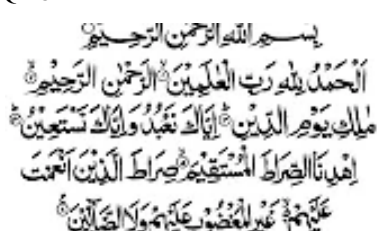 بِسْمِ اللهِ الرَّحْمٰنِ الرَّحِيْمِ
اَلْحَمْدُ لِلّٰهِ رَبِّ الْعٰلَمِيْنَ ۙ الرَّحْمٰنِ الرَّحِيْمِ ۙ
مٰلِكِ يَوْمِ الدِّيْنِ ؕ اِيَّاكَ نَعْبُدُ وَاِيَّاكَ نَسْتَعِيْنُ ؕ
اِهْدِنَا الصِّرَاطَ الْمُسْتَقِيْمَ ۙ صِرَاطَ الَّذِيْنَ اَنْعَمْتَ
عَلَيْهِمْ ۙ غَيْرِ الْمَغْضُوْبِ عَلَيْهِمْ وَلَا الضَّآلِّيْنَ ۠